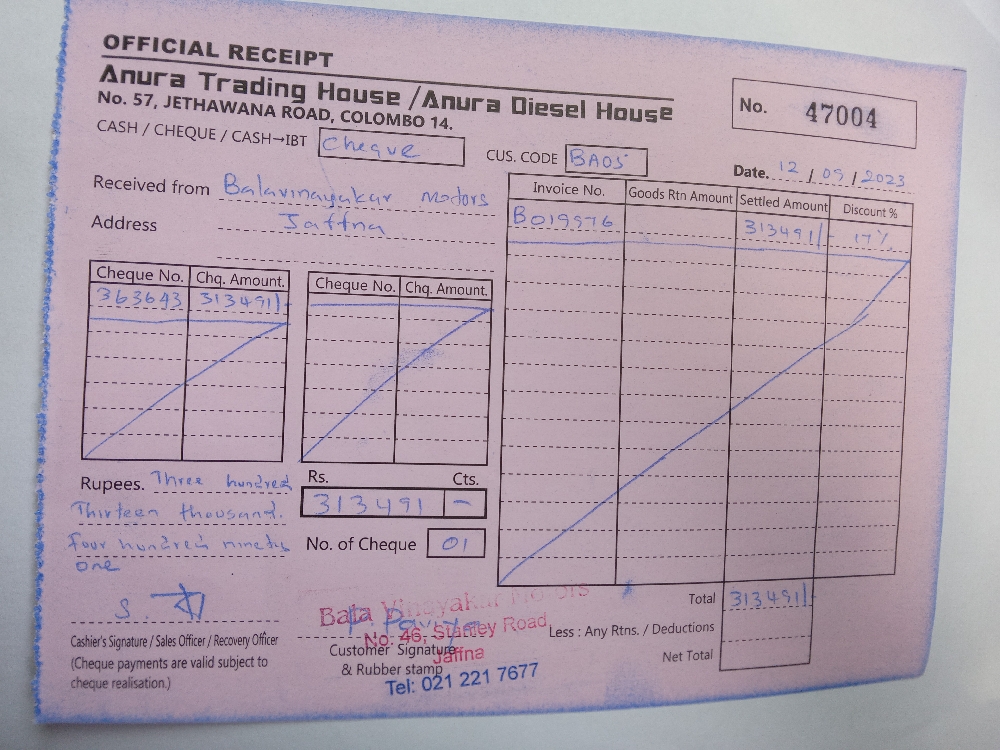 OFFICIAL RECEIPT
Anura Trading House / Anura Diesel House
No. 57, JETHAWANA ROAD, COLOMBO 14.
No. 47004
CASH / CHEQUE / CASH→IBT Cheque
CUS. CODE BA05
Date. 12 / 09 / 2023
Received from Balavinayakar Motors
Address Jaffna
Invoice No. Goods Rtn Amount Settled Amount Discount %
B019976 313491/- 17%
Cheque No. Chq. Amount. Cheque No. Chq. Amount.
363643 313491/-
Rupees. Three hundred
Thirteen thousand.
four hundred ninety
one
Rs. Cts.
313491 -
No. of Cheque 01
Total 313491/-
Less : Any Rtns. / Deductions
Net Total
S.
Cashier's Signature / Sales Officer / Recovery Officer
(Cheque payments are valid subject to
cheque realisation.)
Bala Vinayakar Motors
No: 46, Stanley Road,
Jaffna
Tel: 021 221 7677
Customer Signature
& Rubber stamp